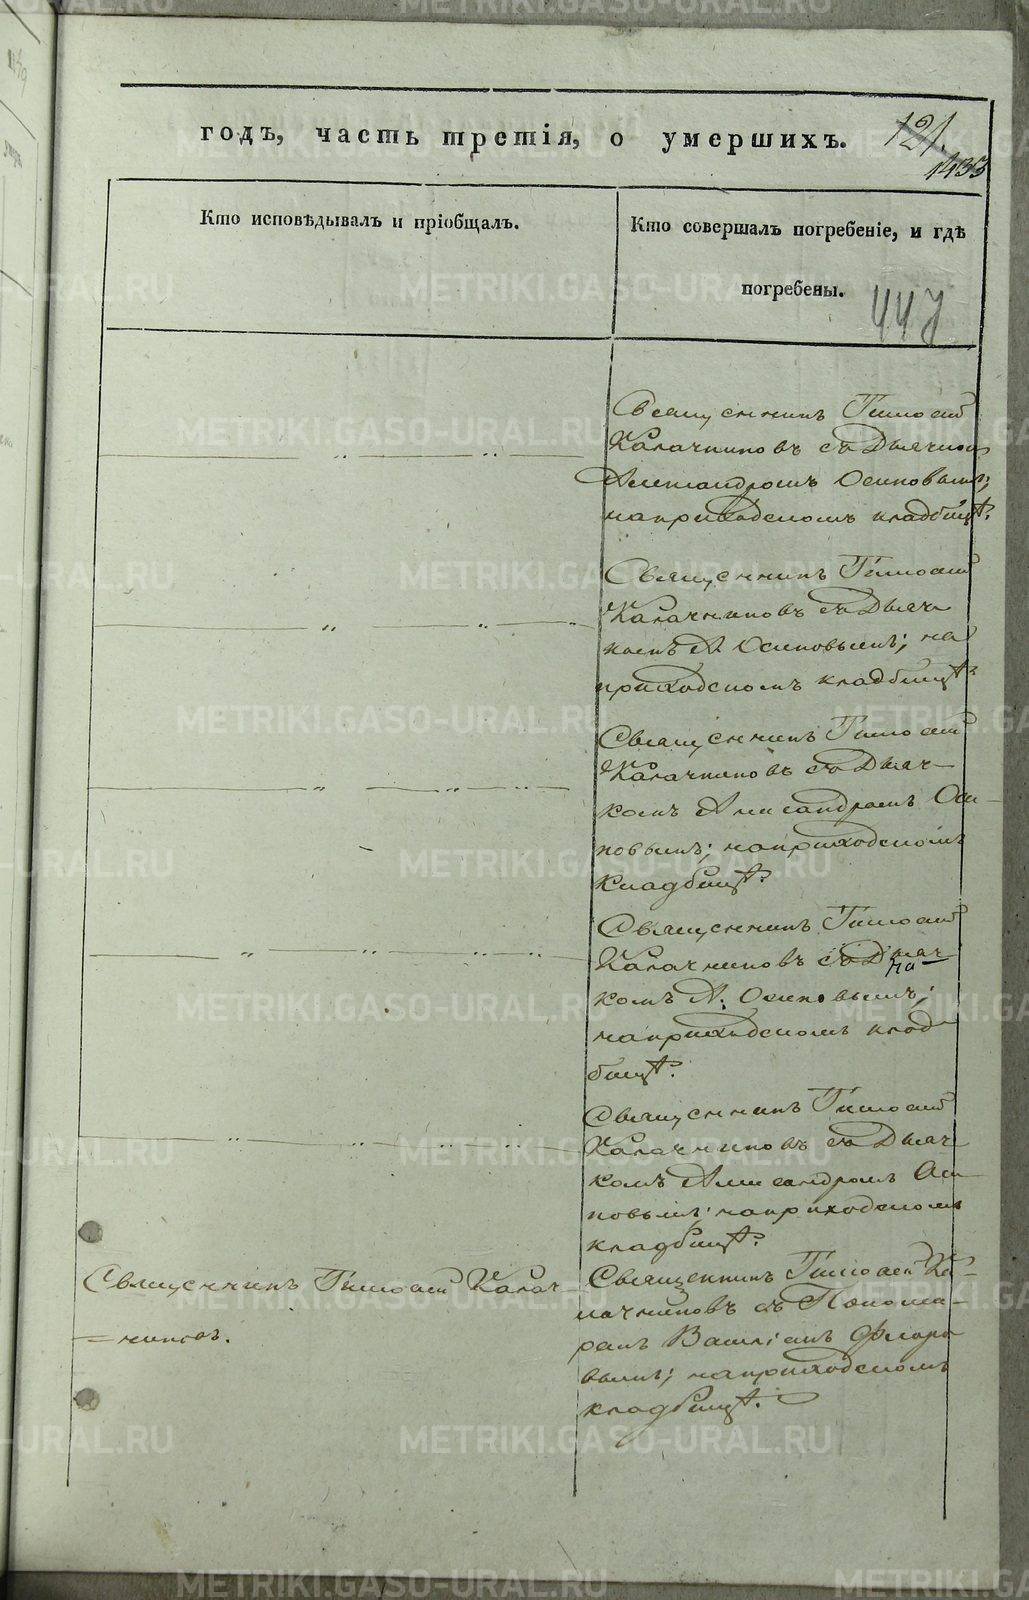 годъ, часть третія, о умершихъ.
121.
1433
Кто исповѣдывалъ и пріобщалъ.
Кто совершалъ погребеніе, и гдѣ
погребены.
447
Священникъ Тимоѳей
Калачниковъ съ Дьячкомъ
Александромъ Осиповымъ;
на приходскомъ кладбищѣ.
Священникъ Тимоѳей
Калачниковъ съ Дьяч-
комъ А. Осиповымъ; на
приходскомъ кладбищѣ.
Священникъ Тимоѳей
Калачниковъ съ Дьяч-
комъ Александромъ Оси-
повымъ; на приходскомъ
кладбищѣ.
Священникъ Тимоѳей
Калачниковъ съ Дьяч-
комъ А. Осиповымъ;
на приходскомъ клад-
бищѣ.
Священникъ Тимоѳей
Калачниковъ съ Дьяч-
комъ Александромъ Оси-
повымъ; на приходскомъ
кладбищѣ.
Священникъ Тимоѳей Калач-
никовъ.
Священникъ Тимоѳей Ка-
лачниковъ съ Понома-
ремъ Василіемъ Флоро-
вымъ; на приходскомъ
кладбищѣ.
METRIKI.GASO-URAL.RU